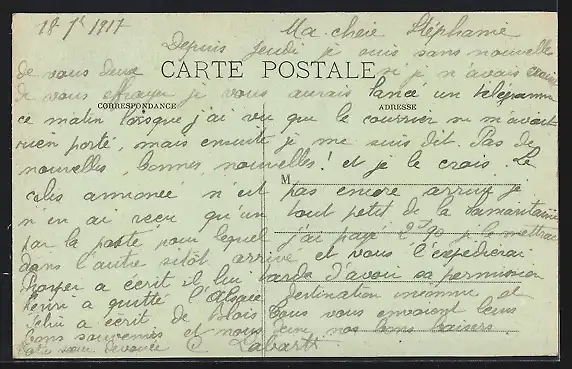 18 7re 1917
Ma chère Stéphanie
Depuis Jeudi je suis sans nouvelles
de vous deux si je n'avais craint
CARTE POSTALE
de vous effrayer je vous aurais lancé un télégramme
CORRESPONDANCE
ADRESSE
ce matin lorsque j'ai vu que le courrier ne m'avait
rien porté, mais ensuite je me suis dit. Pas de
nouvelles, bonnes nouvelles! et je le crois. Le
M
colis annoncé n'est pas encore arrivé je
n'en ai reçu qu'un tout petit de la Samaritaine
par la poste pour lequel j'ai payé 2f90 je le mettrai
dans l'autre sitôt arrivé et vous l'expédierai
a écrit il lui tarde d'avoir sa permission
Henri a quitté l'Alsace destination inconnue et
a écrit de tous vous envoient leurs
bons souvenirs et nous deux nos bons baisers.
Votre sœur dévouée C Labarth